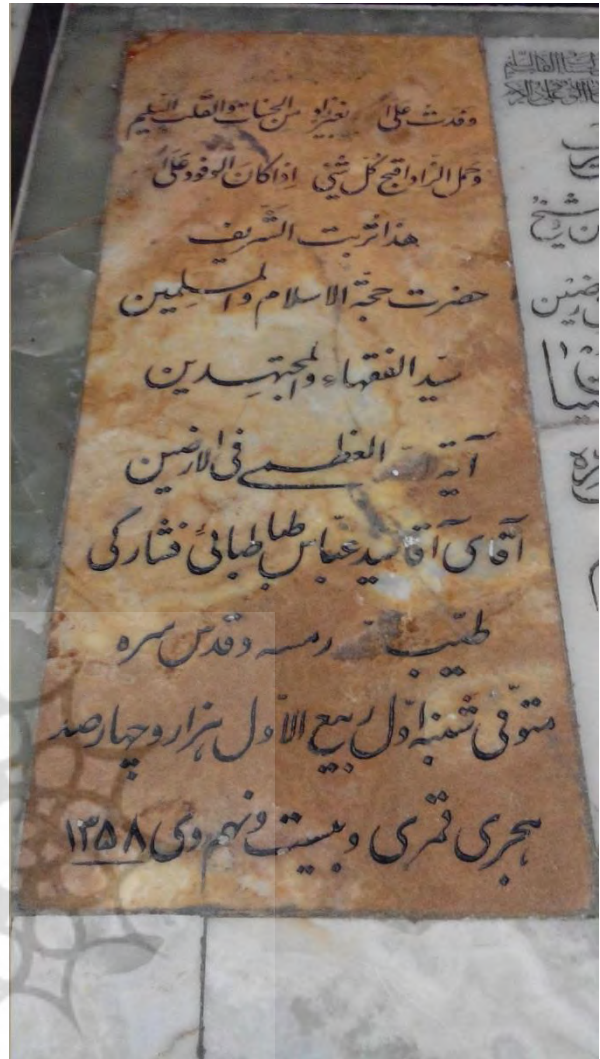 وفدت علی بغیر زاد من الحسنات والقلب السلیم
وحمل الزاد اقبح کل شیئ اذا کان الوفود علی
هذا تربت الشریف
حضرت حجة الاسلام والمسلمین
سید الفقهاء والمجتهدین
آیة العظمی فی الارضین
آقای آقا سید عباس طباطبائی فشارکی
طیب رمسه وقدس سره
متوفی شنبه اول ربیع الاول هزار و چهارصد
هجری قمری و بیست و نهم دی ۱۳۵۸